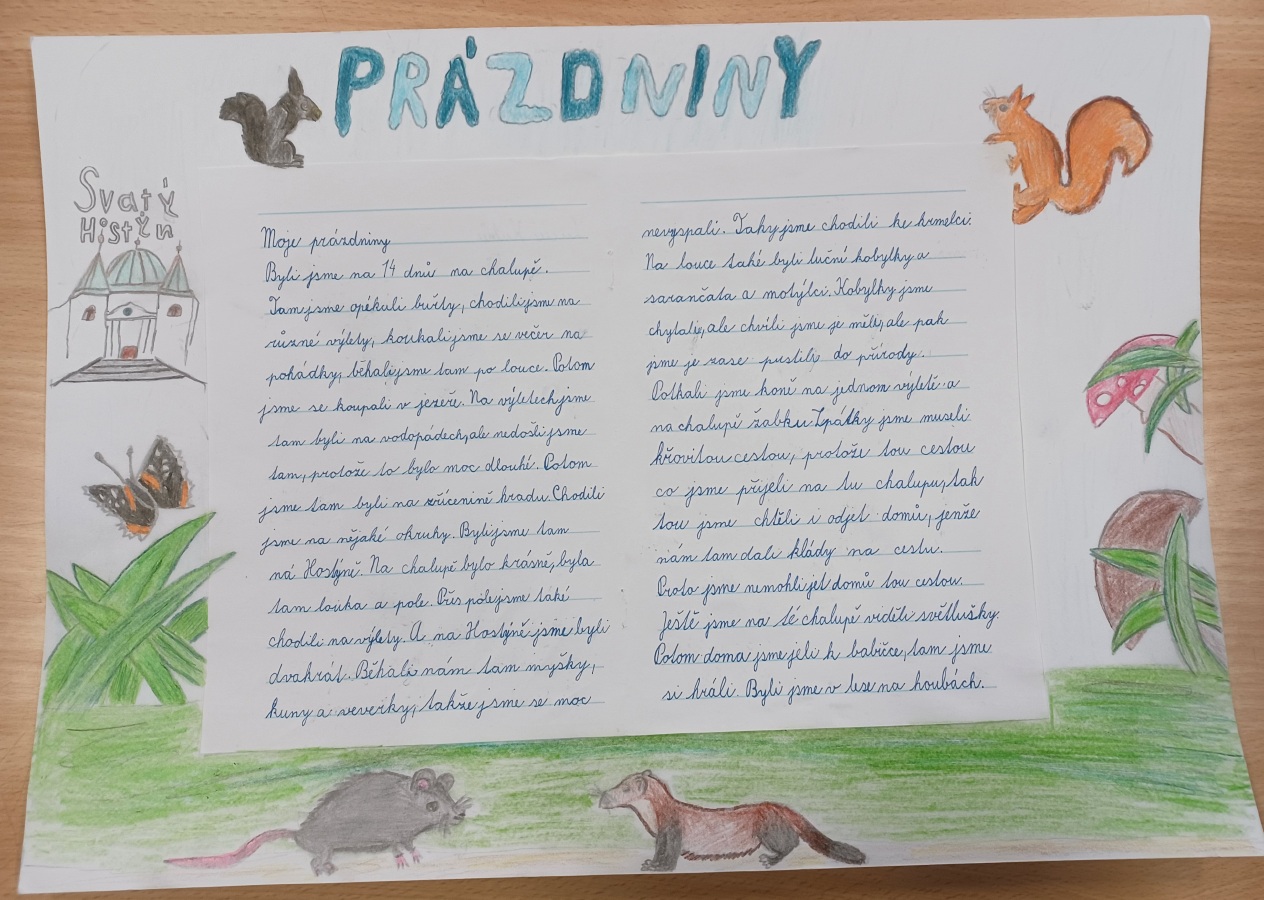 PRÁZDNINY
Svatý
Histýn
Moje prázdniny
Byli jsme na 14 dnů na chalupě.
Tam jsme opékali buřty, chodili jsme na
různé výlety, koukali jsme se večer na
pohádky, běhali jsme tam po louce. Potom
jsme se koupali v jezeře. Na výletech jsme
tam byli na vodopádech, ale nedošli jsme
tam, protože to bylo moc dlouhé. Potom
jsme tam byli na zřícenině hradu. Chodili
jsme na nějaké okruhy. Byli jsme tam
na Hostýně. Na chalupě bylo krásně, byla
tam louka a pole. Přes pole jsme také
chodili na výlety. A na Hostýně jsme byli
dvakrát. Běhali nám tam myšky,
kuny a veverky, takže jsme se moc
nevyspali. Taky jsme chodili ke krmelci.
Na louce také byli luční kobylky a
sarančata a motýlci. Kobylky jsme
chytali, ale chvíli jsme je měli, ale pak
jsme je zase pustili do přírody.
Potkali jsme koně na jednom výletě a
na chalupě žabku. Zpátky jsme museli
křovitou cestou, protože tou cestou
co jsme přijeli na tu chalupu, tak
tou jsme chtěli i odjet domů, jenže
nám tam dali klády na cestu.
Proto jsme nemohli jet domů tou cestou.
Ještě jsme na té chalupě viděli světlušky.
Potom doma jsme jeli k babičce, tam jsme
si hráli. Byli jsme v lese na houbách.